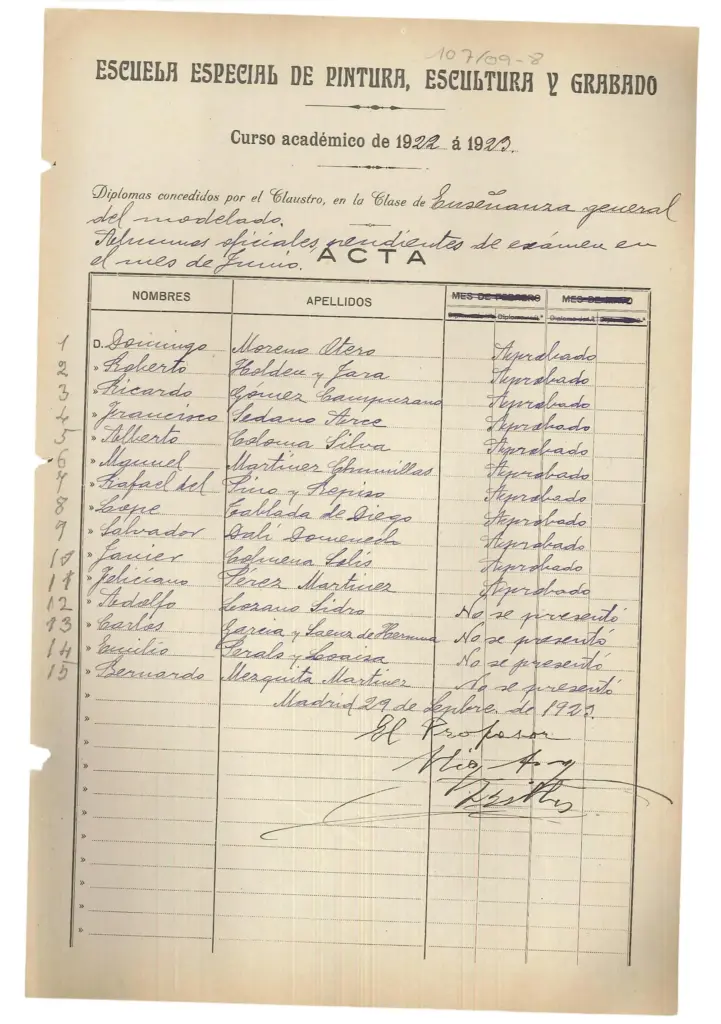 107/09-8
ESCUELA ESPECIAL DE PINTURA, ESCULTURA Y GRABADO
Curso académico de 1922 á 1923.
Diplomas concedidos por el Claustro, en la Clase de Enseñanza general
del modelado.
Alumnos oficiales, pendientes de exámen en
el mes de Junio. ACTA
NOMBRES APELLIDOS MES DE FEBRERO MES DE MAYO
1 D. Domingo Moreno Otero Aprobado
2 » Roberto Holden y Jara Aprobado
3 » Ricardo Gómez Campuzano Aprobado
4 » Francisco Sedano Arce Aprobado
5 » Alberto Coloma Silva Aprobado
6 » Manuel Martinez Chumillas Aprobado
7 » Rafael del Pino y Repiso Aprobado
8 » Lope Tablada de Diego Aprobado
9 » Salvador Dalí Domenech Aprobado
10 » Javier Colmena Solís Aprobado
11 » Feliciano Pérez Martinez Aprobado
12 » Adolfo Lozano Sidro No se presentó
13 » Carlos Garcia y Saenz de No se presentó
14 » Emilio Perals y Loaisa No se presentó
15 » Bernardo Mezquita Martinez No se presentó
Madrid, 29 de Sepbre. de 1923.
El Profesor